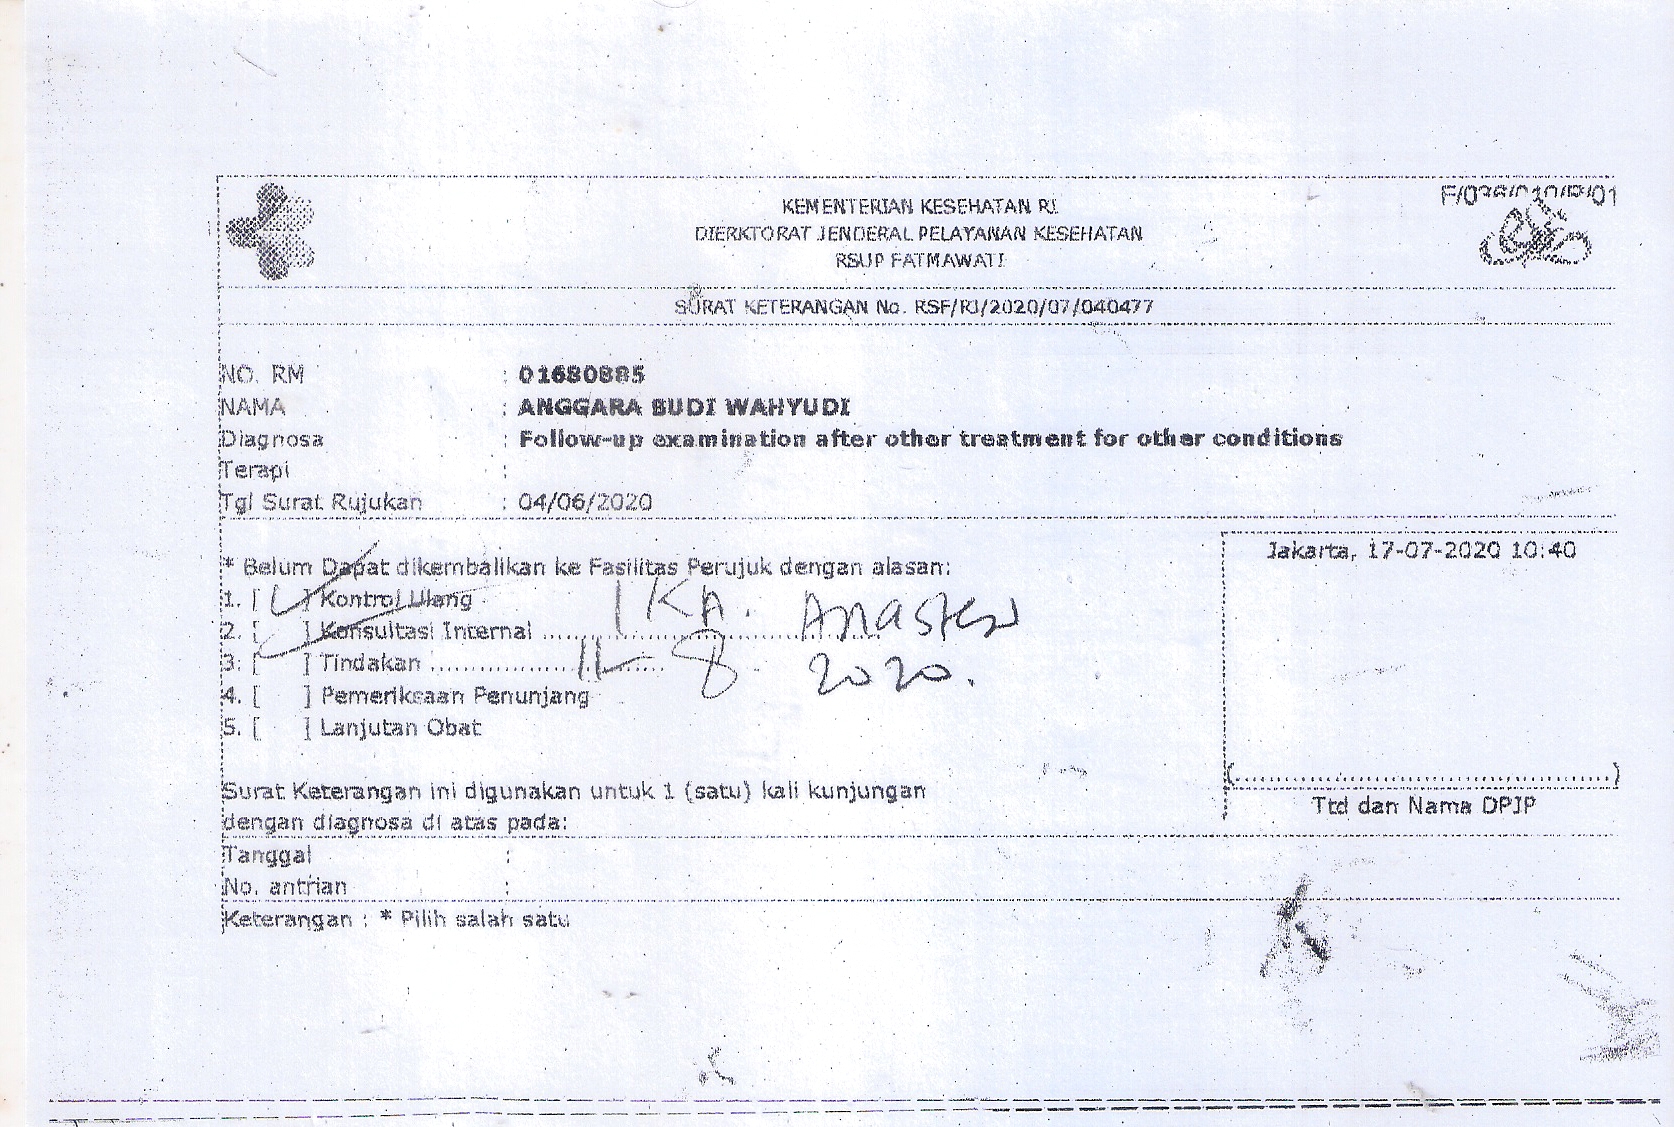 KEMENTERIAN KESEHATAN RI
DIERKTORAT JENDERAL PELAYANAN KESEHATAN
RSUP FATMAWATI
SURAT KETERANGAN No. RSF/RJ/2020/07/040477
NO. RM : 01680885
NAMA : ANGGARA BUDI WAHYUDI
Diagnosa : Follow-up examination after other treatment for other conditions
Terapi :
Tgl Surat Rujukan : 04/06/2020
Jakarta, 17-07-2020 10:40
* Belum Dapat dikembalikan ke Fasilitas Perujuk dengan alasan:
1. [ ] Kontrol Ulang
2. [ ] Konsultasi Internal .......... IKA. Anastesi
3. [ ] Tindakan .......... 11 - 8 2020.
4. [ ] Pemeriksaan Penunjang
5. [ ] Lanjutan Obat
(..........)
Ttd dan Nama DPJP
Surat Keterangan ini digunakan untuk 1 (satu) kali kunjungan
dengan diagnosa di atas pada:
Tanggal :
No. antrian :
Keterangan : * Pilih salah satu